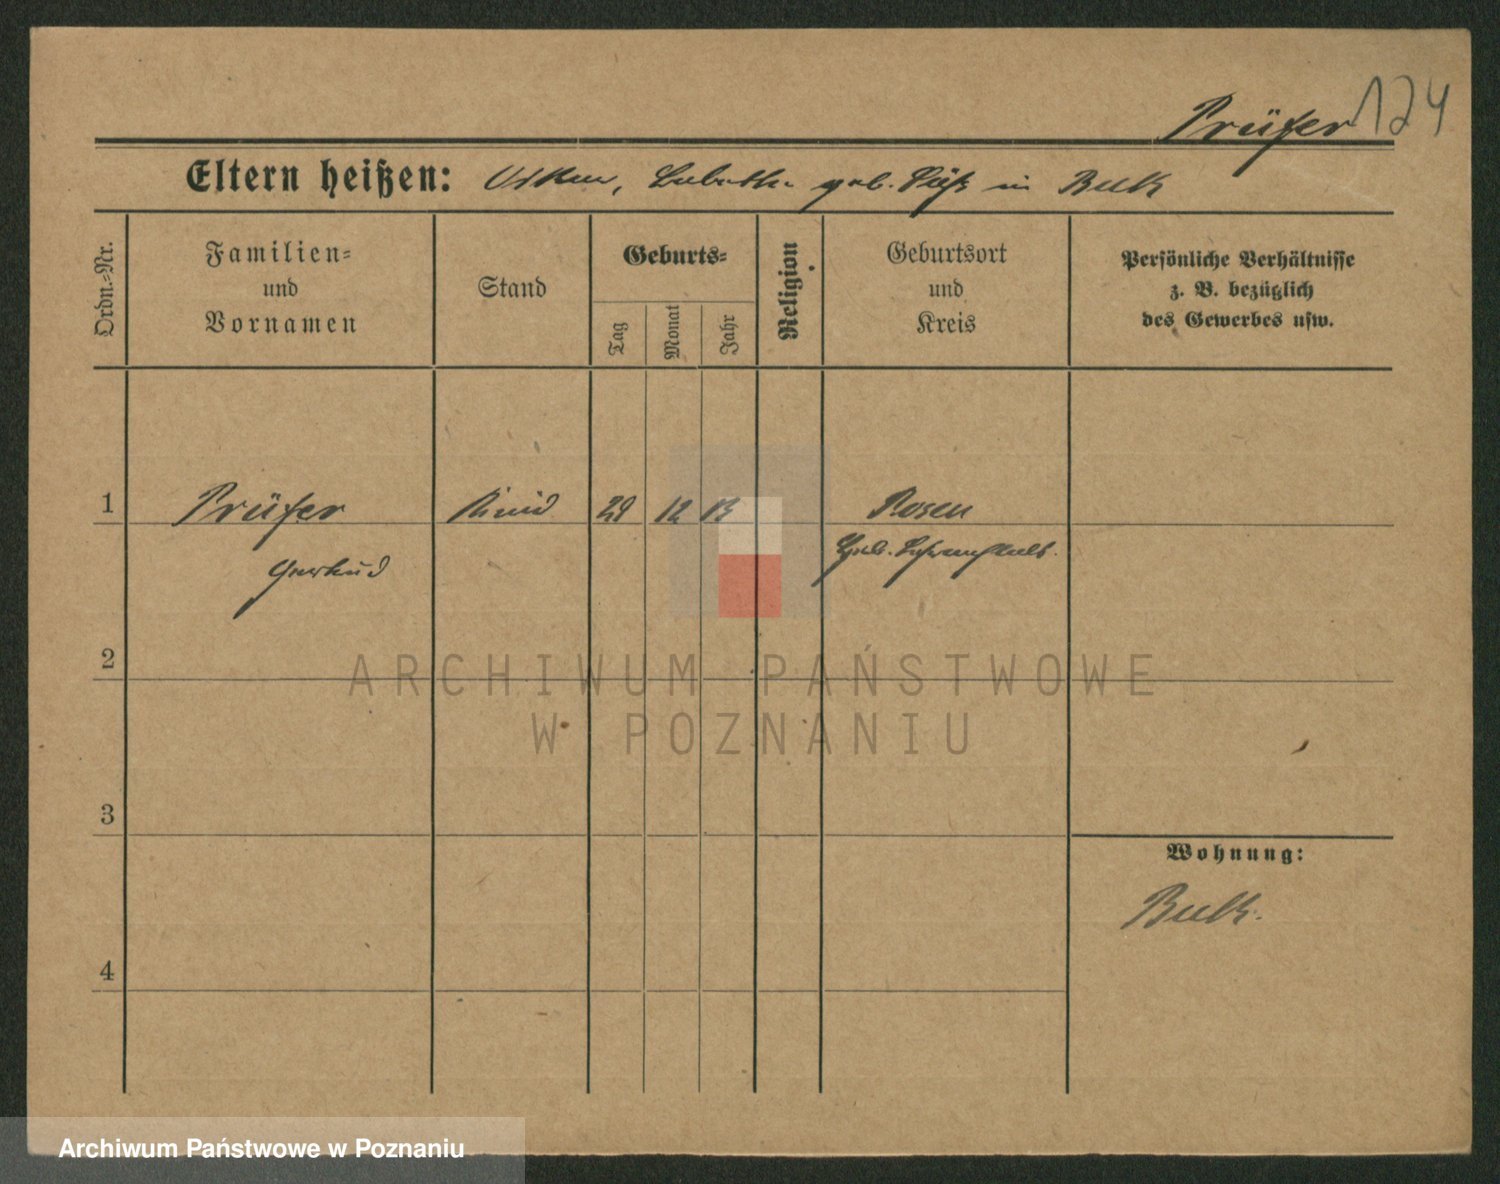 Prüfer 124
Eltern heißen: geb. Süß in Buk
Ordn.-Nr.
Familien-
und
Vornamen
Stand
Geburts-
Tag
Monat
Jahr
Religion
Geburtsort
und
Kreis
Persönliche Verhältnisse
z. B. bezüglich
des Gewerbes usw.
1 Prüfer Kind 29 12 13 Posen
Gertrud
2
3
4
Wohnung:
Buk.
ARCHIWUM PAŃSTWOWE
W POZNANIU
Archiwum Państwowe w Poznaniu